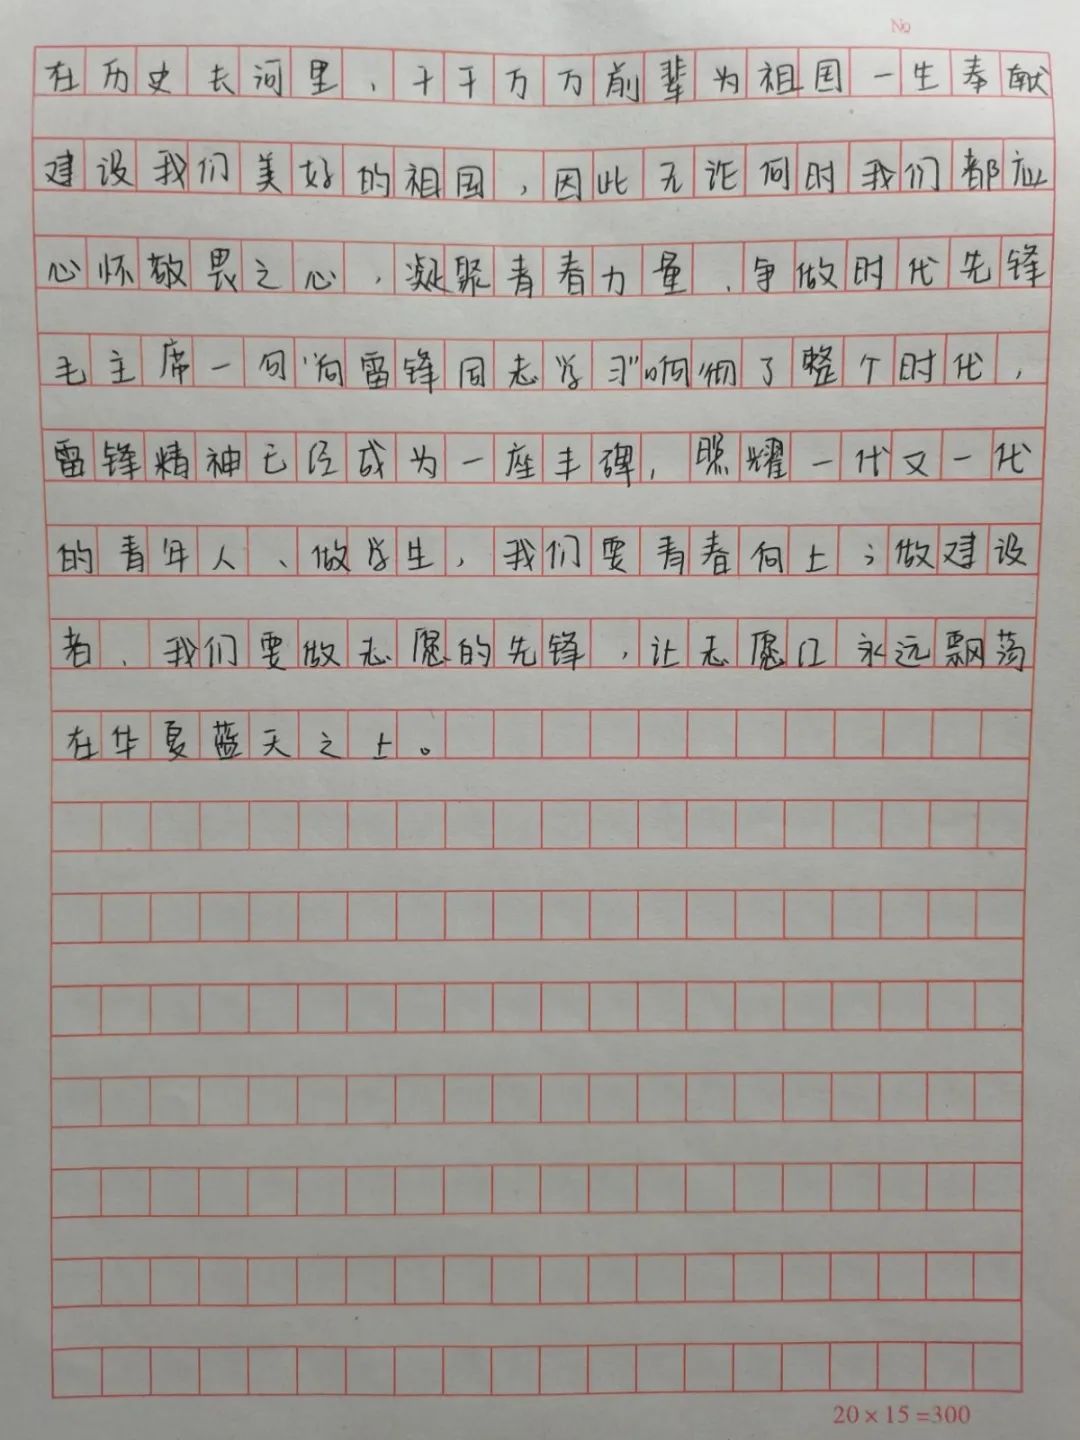 No
在历史长河里，千千万万前辈为祖国一生奉献
建设我们美好的祖国，因此无论何时我们都应
心怀敬畏之心，凝聚青春力量、争做时代先锋
毛主席一句"向雷锋同志学习"响彻了整个时代，
雷锋精神已经成为一座丰碑，照耀一代又一代
的青年人、做学生，我们要青春向上；做建设
者、我们要做志愿的先锋，让志愿江永远飘荡
在华夏蓝天之上。
20×15=300